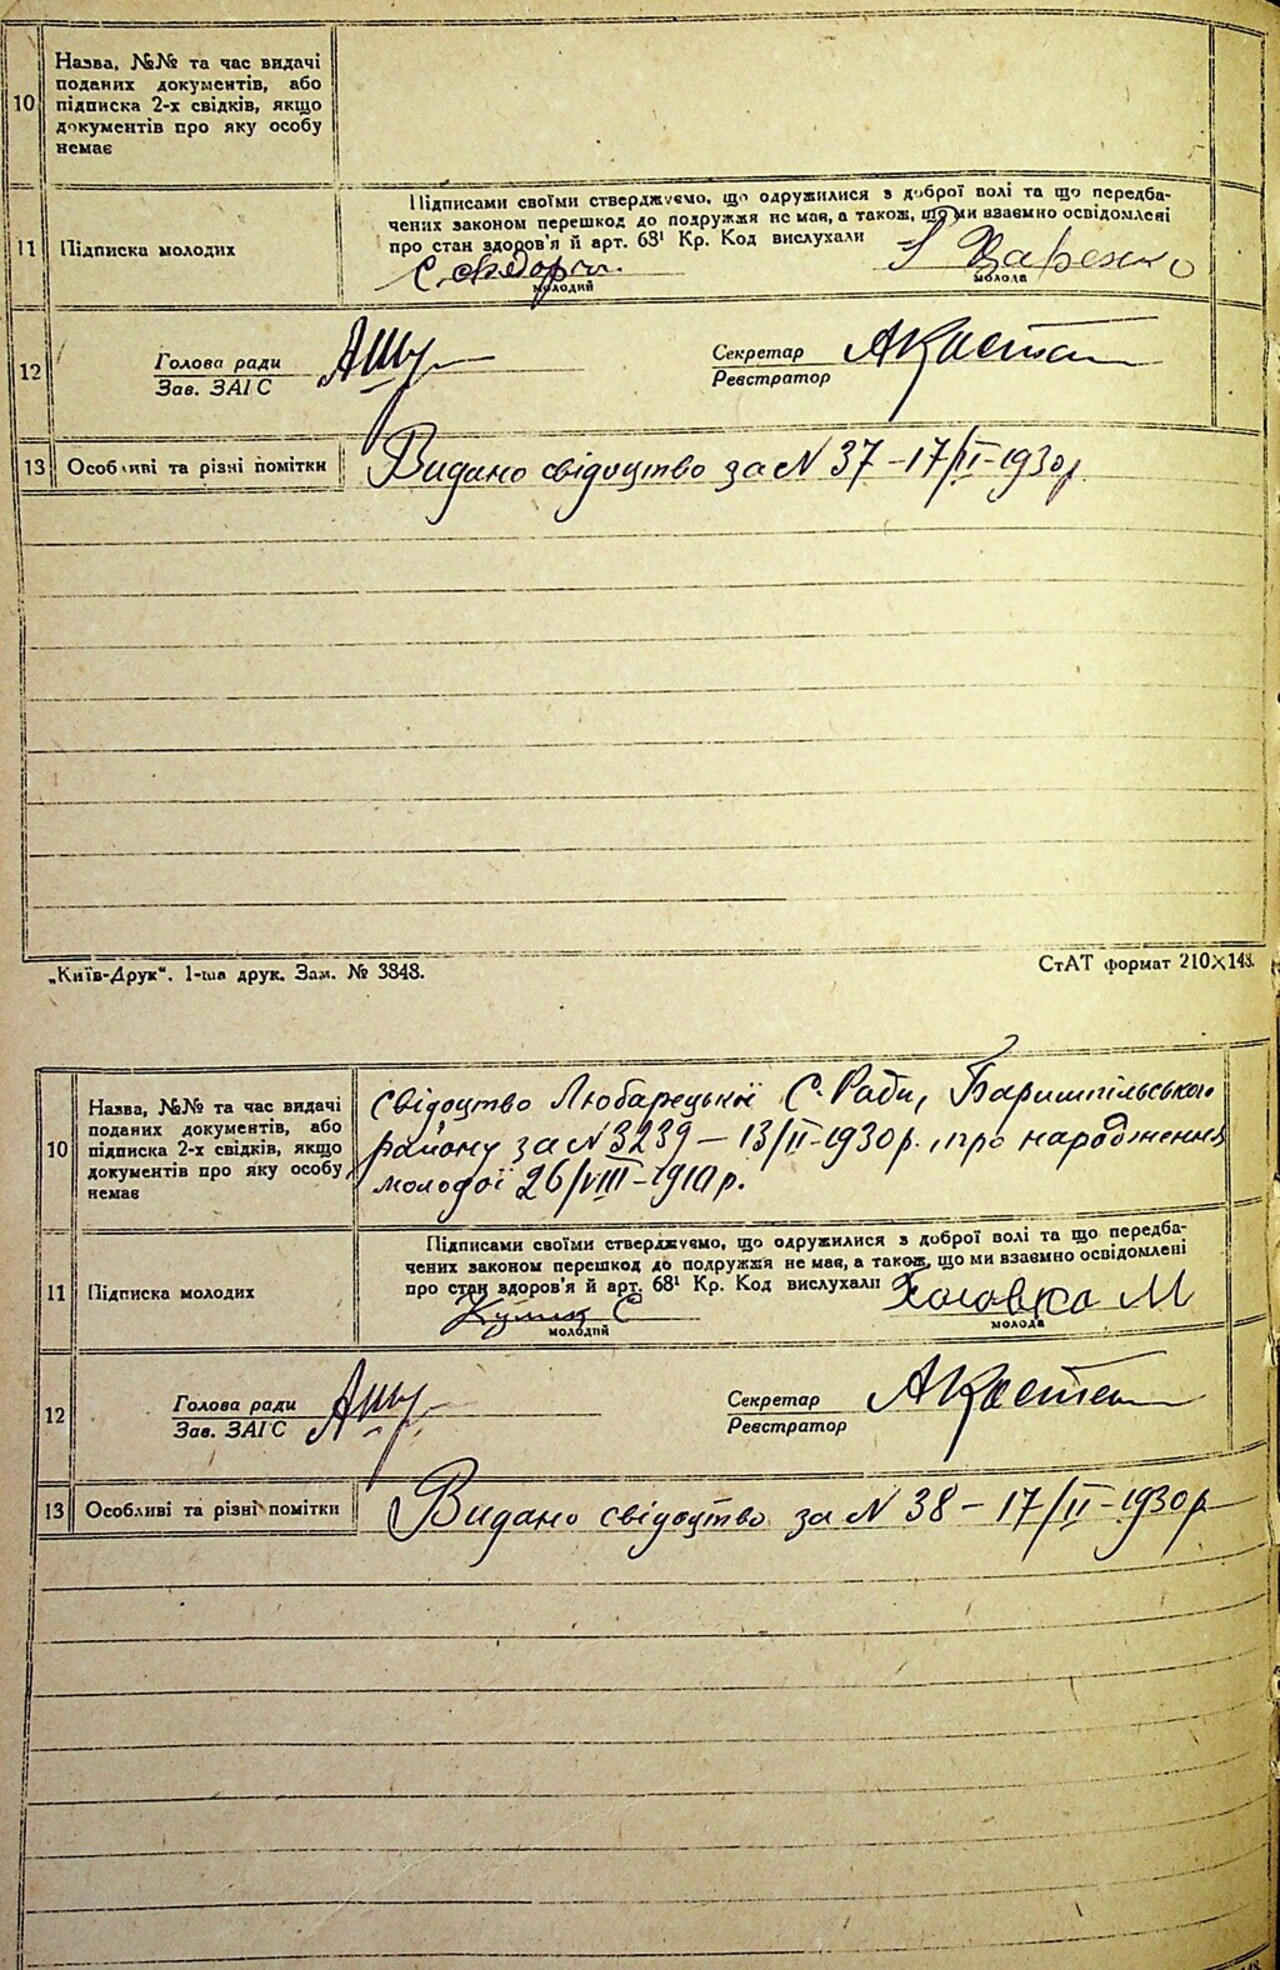 10
Назва, №№ та час видачі
поданих документів, або
підписка 2-х свідків, якщо
документів про яку особу
немає
11
Підписка молодих
Підписами своїми стверджуємо, що одружилися з доброї волі та що передба-
чених законом перешкод до подружжя не має, а також, що ми взаємно освідомлені
про стан здоров'я й арт. 68¹ Кр. Код вислухали
молодий
молода
12
Голова ради
Зав. ЗАГС
Секретар
Реєстратор
13
Особливі та різні помітки
Видано свідоцтво за N 37 – 17/II – 1930р.
„Київ-Друк“. 1-ша друк. Зам. № 3848.
СтАТ формат 210×148.
10
Назва, №№ та час видачі
поданих документів, або
підписка 2-х свідків, якщо
документів про яку особу
немає
свідоцтво Любарецької С. Ради, Баришпільського
району за N 3239 – 13/II – 1930р., про народження
молодої 26/VIII – 1910р.
11
Підписка молодих
Підписами своїми стверджуємо, що одружилися з доброї волі та що передба-
чених законом перешкод до подружжя не має, а також, що ми взаємно освідомлені
про стан здоров'я й арт. 68¹ Кр. Код вислухали
Кулик С
молодий
М
молода
12
Голова ради
Зав. ЗАГС
Секретар
Реєстратор
13
Особливі та різні помітки
Видано свідоцтво за N 38 – 17/II – 1930р